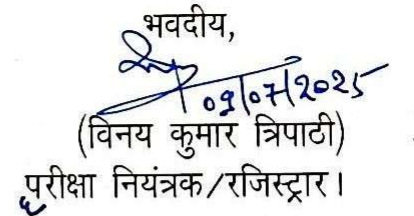 भवदीय,
09/07/2025
(विनय कुमार त्रिपाठी)
परीक्षा नियंत्रक/रजिस्ट्रार।